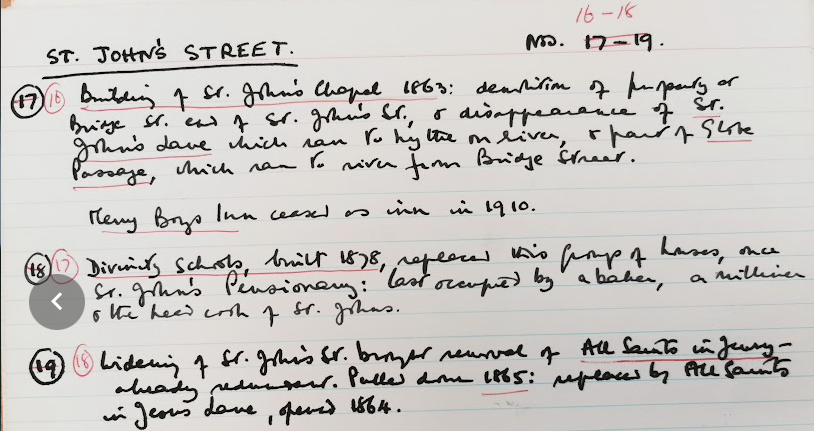 16-18
ST. JOHN'S STREET. NOS. 17-19.
17 16 Building of St. John's Chapel 1863: demolition of property at
Bridge St. end of St. John's St., & disappearance of St.
John's Lane which ran to hythe on river, & part of Globe
Passage, which ran to river from Bridge Street.
Merry Boys Inn ceased as inn in 1910.
18 17 Divinity Schools, built 1878, replaced this group of houses, once
St. John's Pensionary: last occupied by a baker, a milliner
& the head cook of St. Johns.
19 18 Widening of St. John's St. brought removal of All Saints in Jewry -
already redundant. Pulled down 1865: replaced by All Saints
in Jesus Lane, opened 1864.